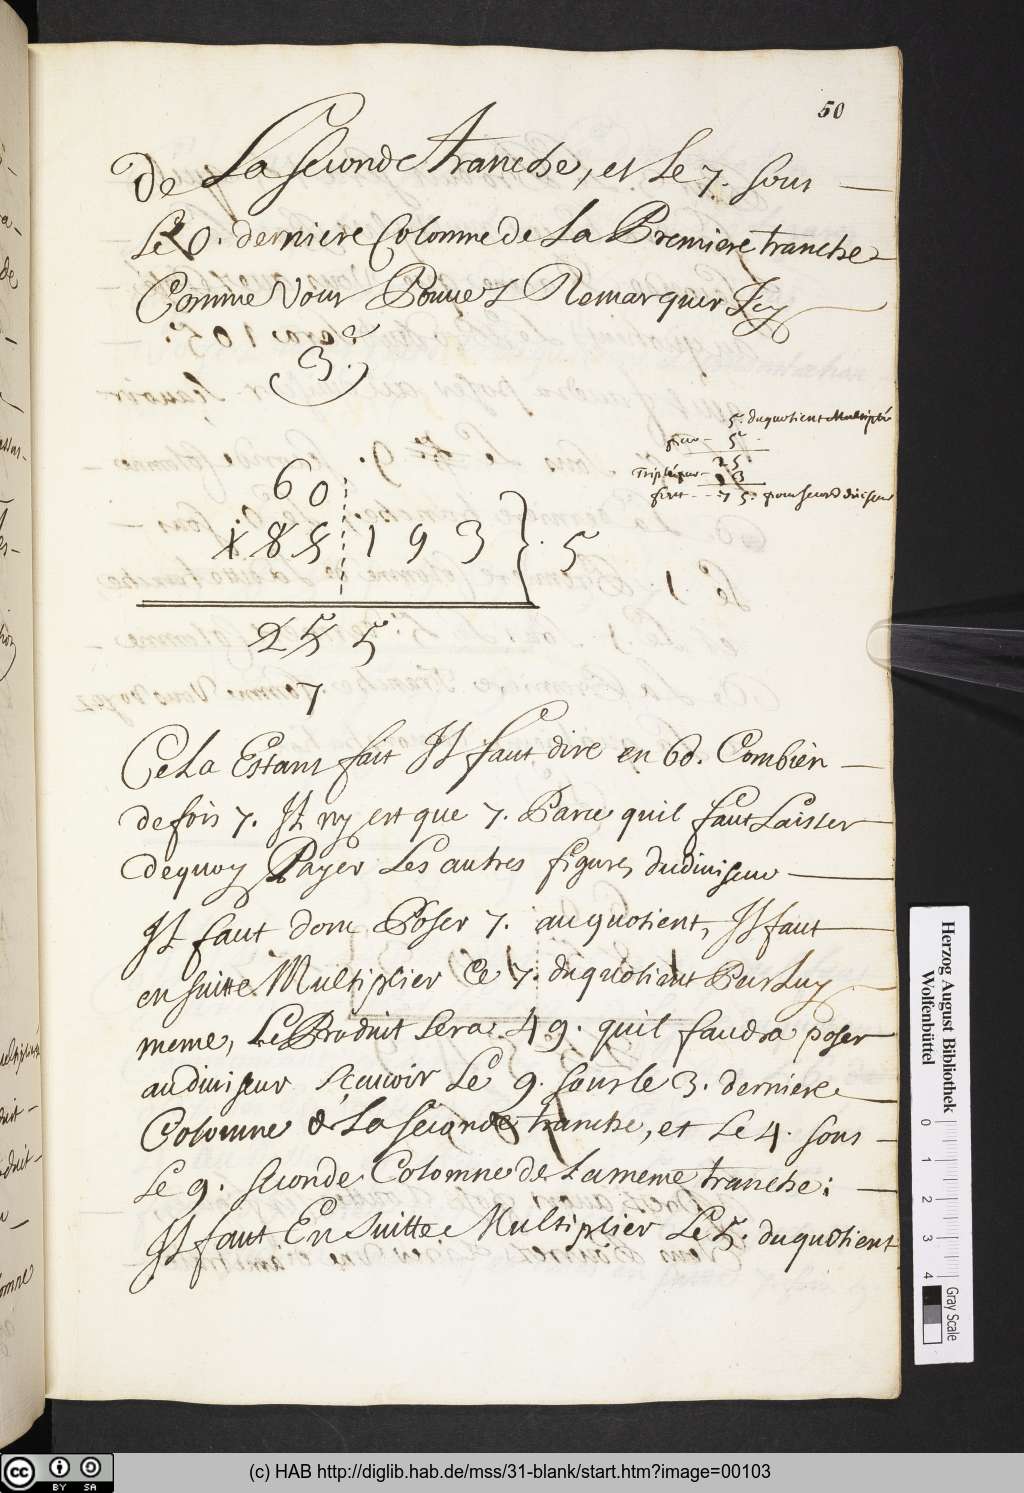 50
de La seconde tranche, et Le 7. sous
Le 0. derniere Colomne de La Premiere tranche
Comme Vous Pouvez Remarquer Jcy
3.e
5. du quotient Multiplié
par 5
25.
Triplé par 3
font 75. pour second diviseur
60
185 193 } 5
25 5
7
Cela Estant fait Jl faut dire en 60. Combien
de fois 7. Jl ny est que 7. Parce quil faut Laisser
dequoy Payer Les autres figures du diviseur
Jl faut donc Poser 7. au quotient, Jl faut
en suitte Multiplier Ce 7. du quotient Par Luy
meme, Le Produit Sera 49. quil faudra poser
au diviseur Scavoir Le 9. sous le 3. derniere
Colomne de La seconde tranche, et Le 4. sous
Le 9. seconde Colomne de La meme tranche:
Jl faut En suitte Multiplier Le 5. du quotient
Herzog August Bibliothek
Wolfenbüttel
0 1 2 3 4
Gray Scale
cc BY SA
(c) HAB http://diglib.hab.de/mss/31-blank/start.htm?image=00103